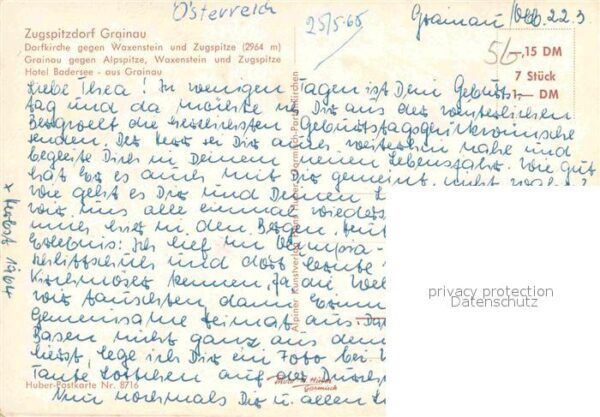 Österreich
25/5-65
Grainau, 22.3.
Zugspitzdorf Grainau
Dorfkirche gegen Waxenstein und Zugspitze (2964 m)
Grainau gegen Alpspitze, Waxenstein und Zugspitze
Hotel Badersee - aus Grainau
56
-,15 DM
7 Stück
1,- DM
Liebe Thea! In wenigen Tagen ist Dein Geburts-
tag und da möchte ich Dir aus der winterlichen
Bergwelt die herzlichsten Geburtstagsglückwünsche
senden. Der Herr sei Dir auch weiterhin nahe und
begleite Dich in Deinem neuen Lebensjahr. Wie gut
hat Er es auch mit Dir gemeint, nicht wahr?
Wie geht es Dir und Deinen
wir uns alle einmal wieders
mich hier in den Bergen.
Erlebnis: Ich lief im Olympia-
Schlittschuh und dort lernte
Kirchmöser kennen. Ja, die Wel
wir tauschten dann Erinn
gemeinsame Heimat aus. Da
Basen nicht ganz aus dem
liest, lege ich Dir ein Foto bei
Tante Lottchen auf der
Nun nochmals Dir u. allen
x Herbst 1964
Alpiner Kunstverlag Hans Huber, Garmisch-Partenkirchen
Huber-Postkarte Nr. 8716
Garmisch
privacy protection
Datenschutz